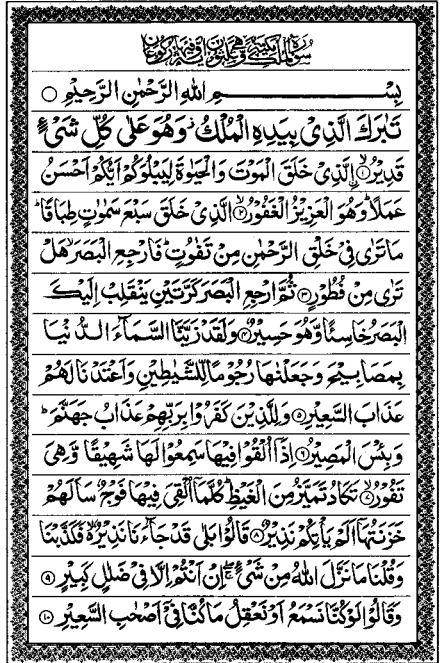 سورة الملك مكية وهي ثلثون اية وفيها ركوعان
بِسْمِ اللهِ الرَّحْمٰنِ الرَّحِيْمِ ○
تَبٰرَكَ الَّذِيْ بِيَدِهِ الْمُلْكُ ۫ وَهُوَ عَلٰى كُلِّ شَيْءٍ
قَدِيْرُۨ ۝۱ الَّذِيْ خَلَقَ الْمَوْتَ وَالْحَيٰوةَ لِيَبْلُوَكُمْ اَيُّكُمْ اَحْسَنُ
عَمَلًا ؕ وَهُوَ الْعَزِيْزُ الْغَفُوْرُ ۝۲ الَّذِيْ خَلَقَ سَبْعَ سَمٰوٰتٍ طِبَاقًا ؕ
مَا تَرٰى فِيْ خَلْقِ الرَّحْمٰنِ مِنْ تَفٰوُتٍ ؕ فَارْجِعِ الْبَصَرَ ۙ هَلْ
تَرٰى مِنْ فُطُوْرٍ ۝۳ ثُمَّ ارْجِعِ الْبَصَرَ كَرَّتَيْنِ يَنْقَلِبْ اِلَيْكَ
الْبَصَرُ خَاسِئًا وَّهُوَ حَسِيْرٌ ۝۴ وَلَقَدْ زَيَّنَّا السَّمَآءَ الدُّنْيَا
بِمَصَابِيْحَ وَجَعَلْنٰهَا رُجُوْمًا لِّلشَّيٰطِيْنِ وَاَعْتَدْنَا لَهُمْ
عَذَابَ السَّعِيْرِ ۝۵ وَلِلَّذِيْنَ كَفَرُوْا بِرَبِّهِمْ عَذَابُ جَهَنَّمَ ؕ
وَبِئْسَ الْمَصِيْرُ ۝۶ اِذَآ اُلْقُوْا فِيْهَا سَمِعُوْا لَهَا شَهِيْقًا وَّهِيَ
تَفُوْرُ ۝۷ تَكَادُ تَمَيَّزُ مِنَ الْغَيْظِ ؕ كُلَّمَآ اُلْقِيَ فِيْهَا فَوْجٌ سَاَلَهُمْ
خَزَنَتُهَآ اَلَمْ يَاْتِكُمْ نَذِيْرٌ ۝۸ قَالُوْا بَلٰى قَدْ جَآءَنَا نَذِيْرٌ ۙ فَكَذَّبْنَا
وَقُلْنَا مَا نَزَّلَ اللهُ مِنْ شَيْءٍ ۚ اِنْ اَنْتُمْ اِلَّا فِيْ ضَلٰلٍ كَبِيْرٍ ۝۹
وَقَالُوْا لَوْ كُنَّا نَسْمَعُ اَوْ نَعْقِلُ مَا كُنَّا فِيْٓ اَصْحٰبِ السَّعِيْرِ ۝۱۰